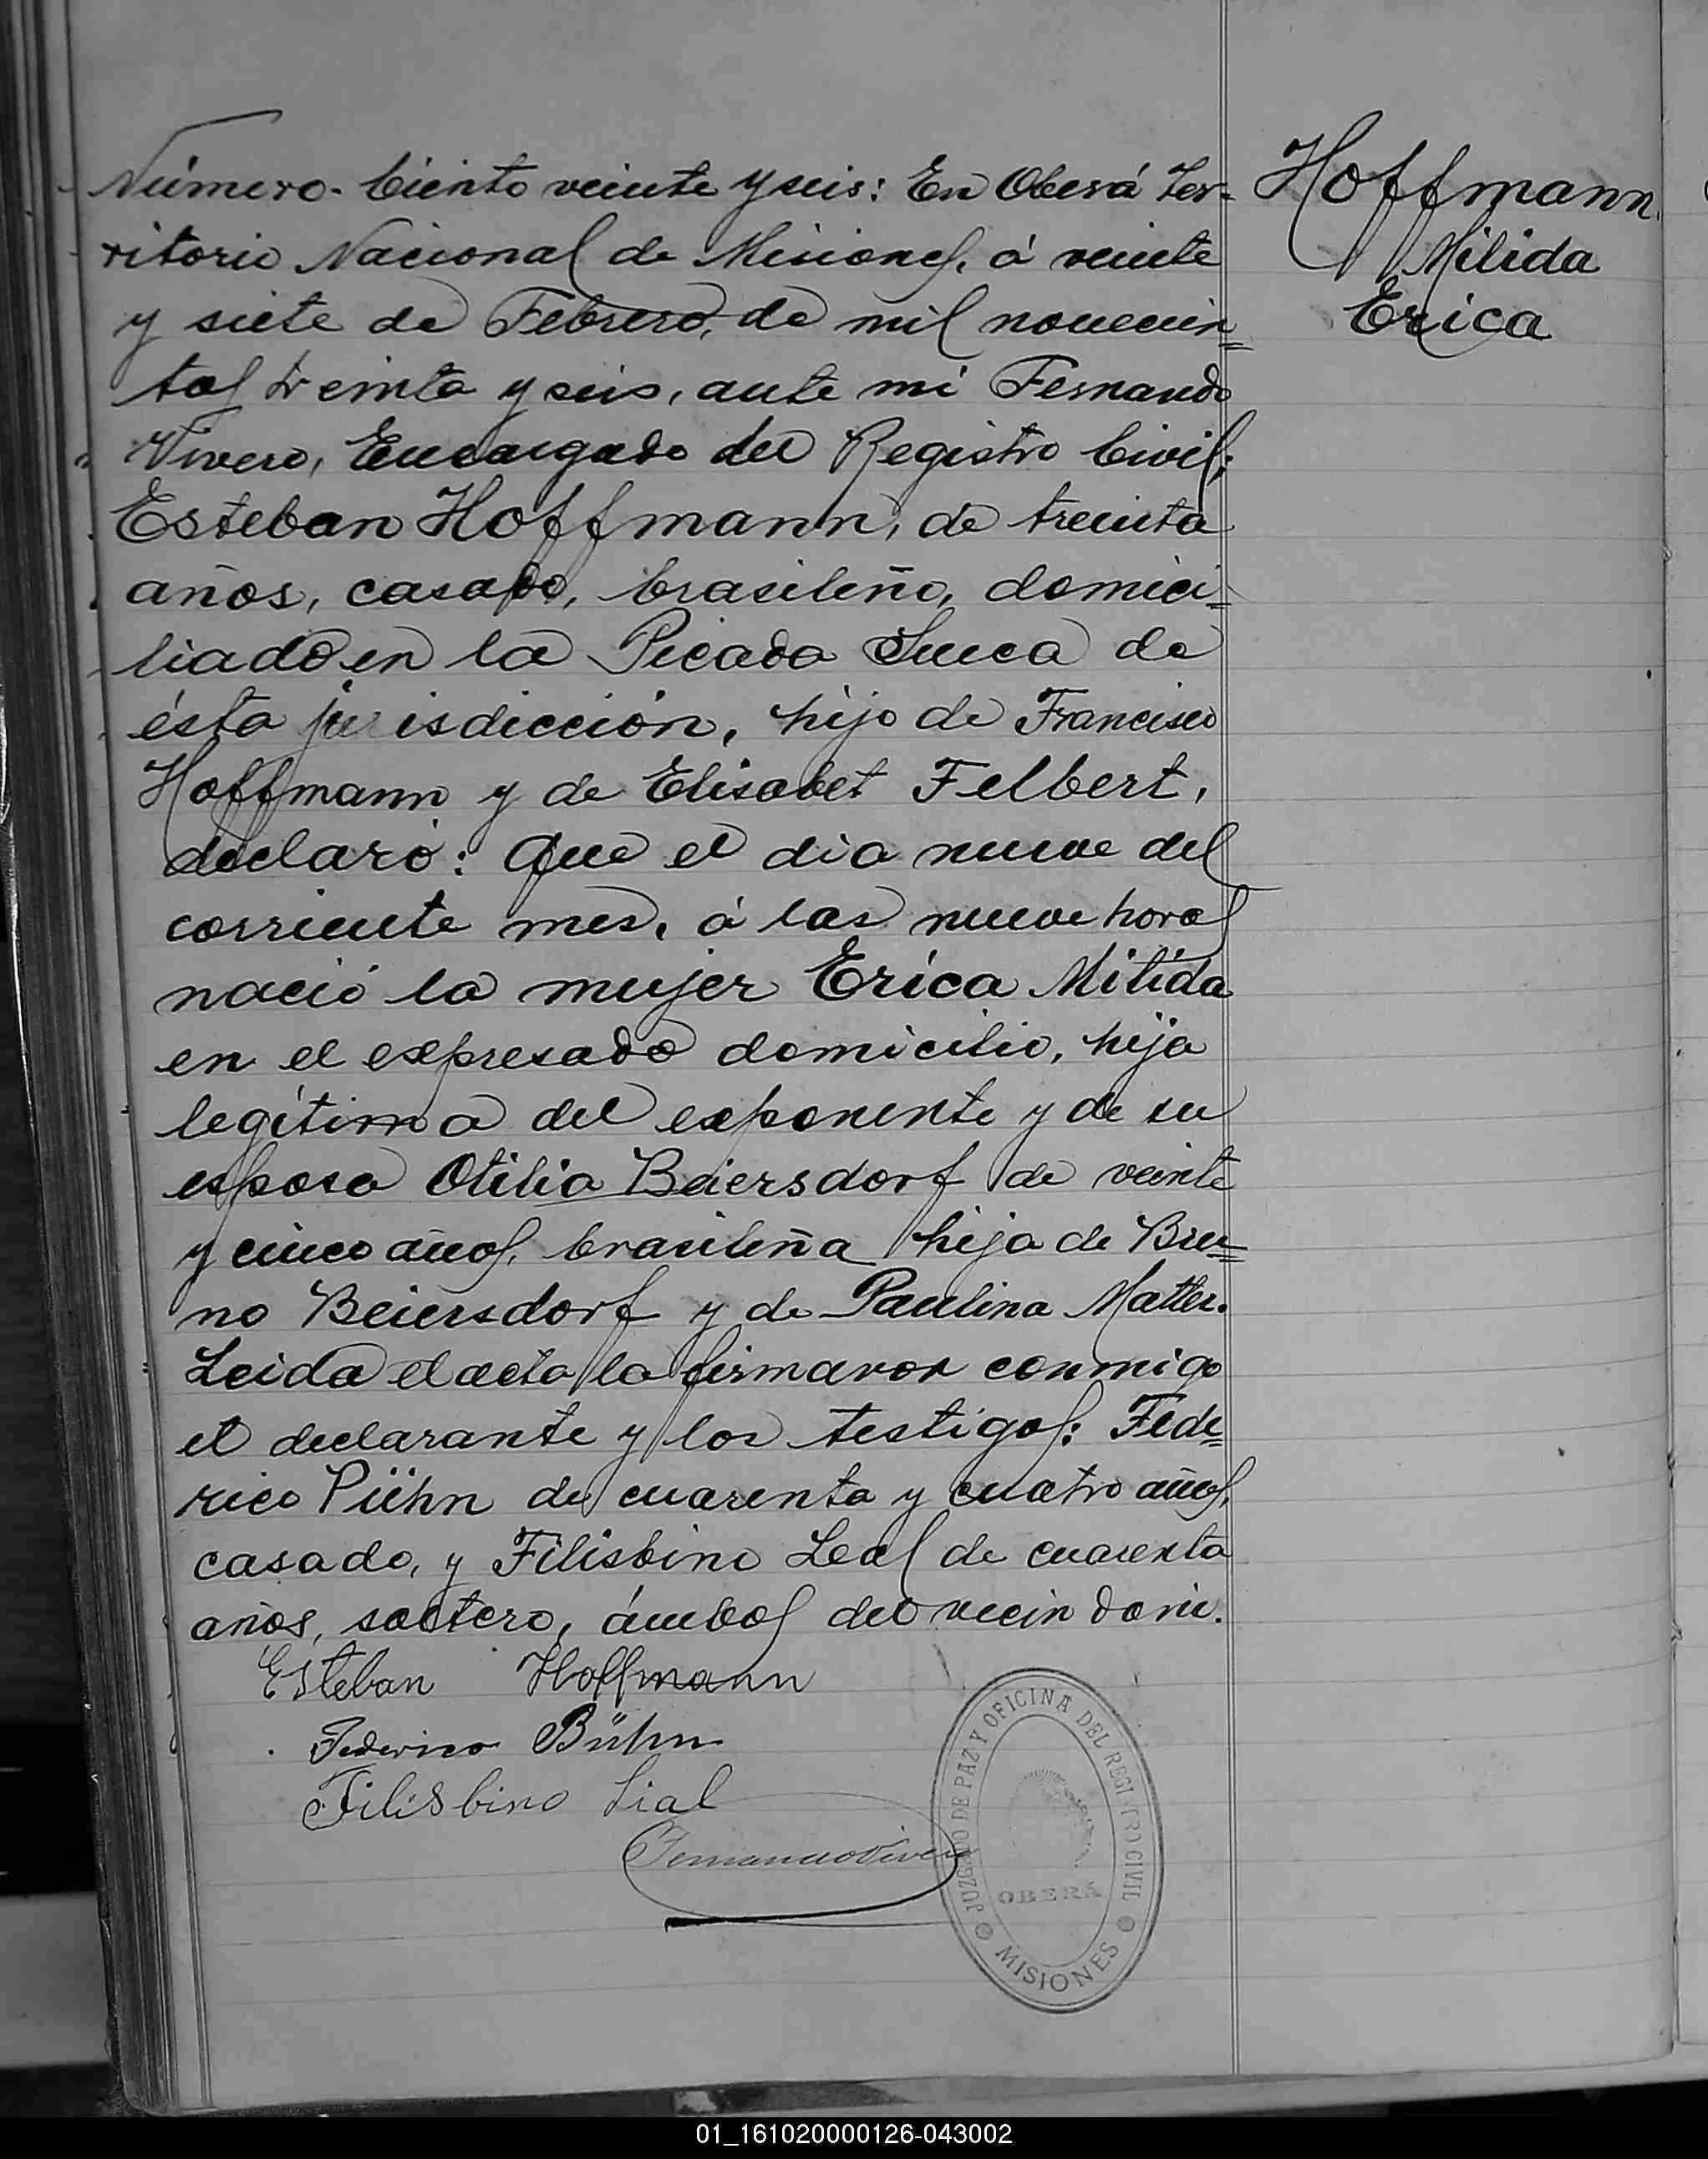 Número. Ciento veinte y seis: En Oberá Ter-
ritorio Nacional de Misiones, á veinte
y siete de Febrero, de mil novecien-
tos treinta y seis, ante mí Fernando
Vivero, Encargado del Registro Civil;
Esteban Hoffmann, de treinta
años, casado, brasileño, domici-
liado en la Picada Sueca de
ésta jurisdicción, hijo de Francisco
Hoffmann y de Elisabet Felbert,
declaró: Que el día nueve del
corriente mes, á las nueve horas
nació la mujer Erica Milida
en el expresado domicilio, hija
legítima del exponente y de su
esposa Otilia Beiersdorf de veinte
y cinco años, brasileña hija de Bru-
no Beiersdorf y de Paulina Matter.
Leida el acta la firmaron conmigo
el declarante y los testigos: Fede-
rico Pühn de cuarenta y cuatro años,
casado, y Filisbino Leal de cuarenta
años, soltero, ámbos del vecindario.
Esteban Hoffmann
Federico Bühn
Filisbino Lial
Fernando Vivero
Hoffmann
Milida
Erica
JUZGADO DE PAZ Y OFICINA DEL REGISTRO CIVIL
OBERÁ
MISIONES
01_161020000126-043002